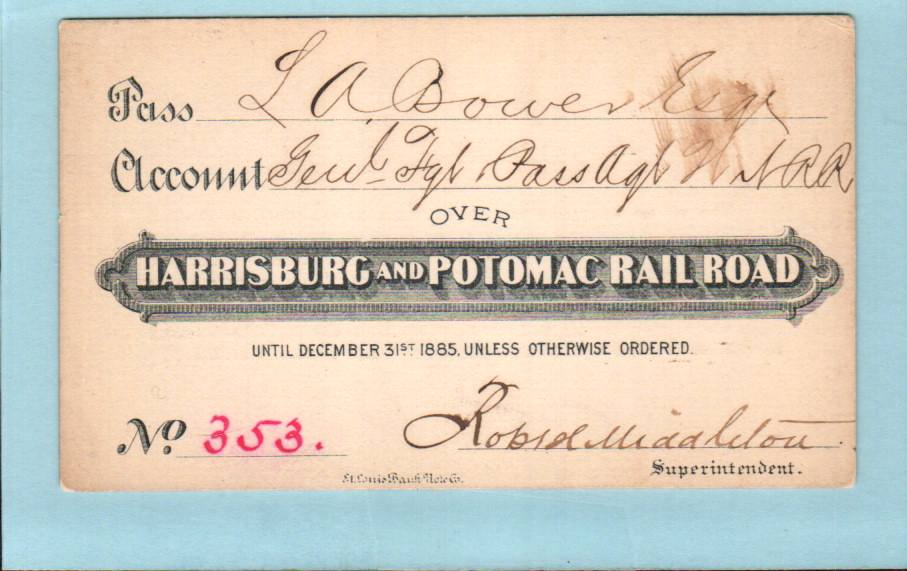 Pass L A Bower Esqr
Account Genl Fgt Pass Agt N R R
OVER
HARRISBURG AND POTOMAC RAIL ROAD
UNTIL DECEMBER 31ST 1885, UNLESS OTHERWISE ORDERED.
No. 353. Middleton
Superintendent.
St. Louis Bank Note Co.